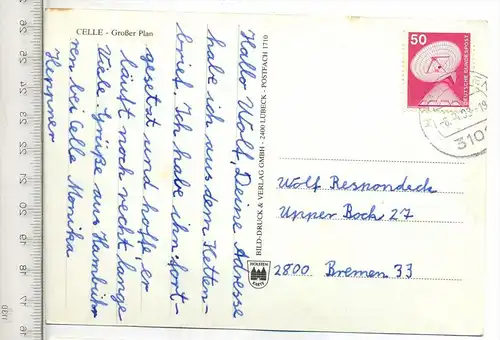 CELLE - Großer Plan
Hallo Wolf, Deine Adresse
habe ich aus dem Ketten-
brief. Ich habe ihn fort-
gesetzt und hoffe, er
läuft noch recht lange.
Viele Grüße aus Hambühr
ren bei Celle Monika
Heppner
BILD-DRUCK & VERLAG GMBH - 2400 LÜBECK - POSTFACH 1710
HOLSTEN
KARTE
50
DEUTSCHE BUNDESPOST
310
Wolf Respondeck
Upper Bock 27
2800 Bremen 33